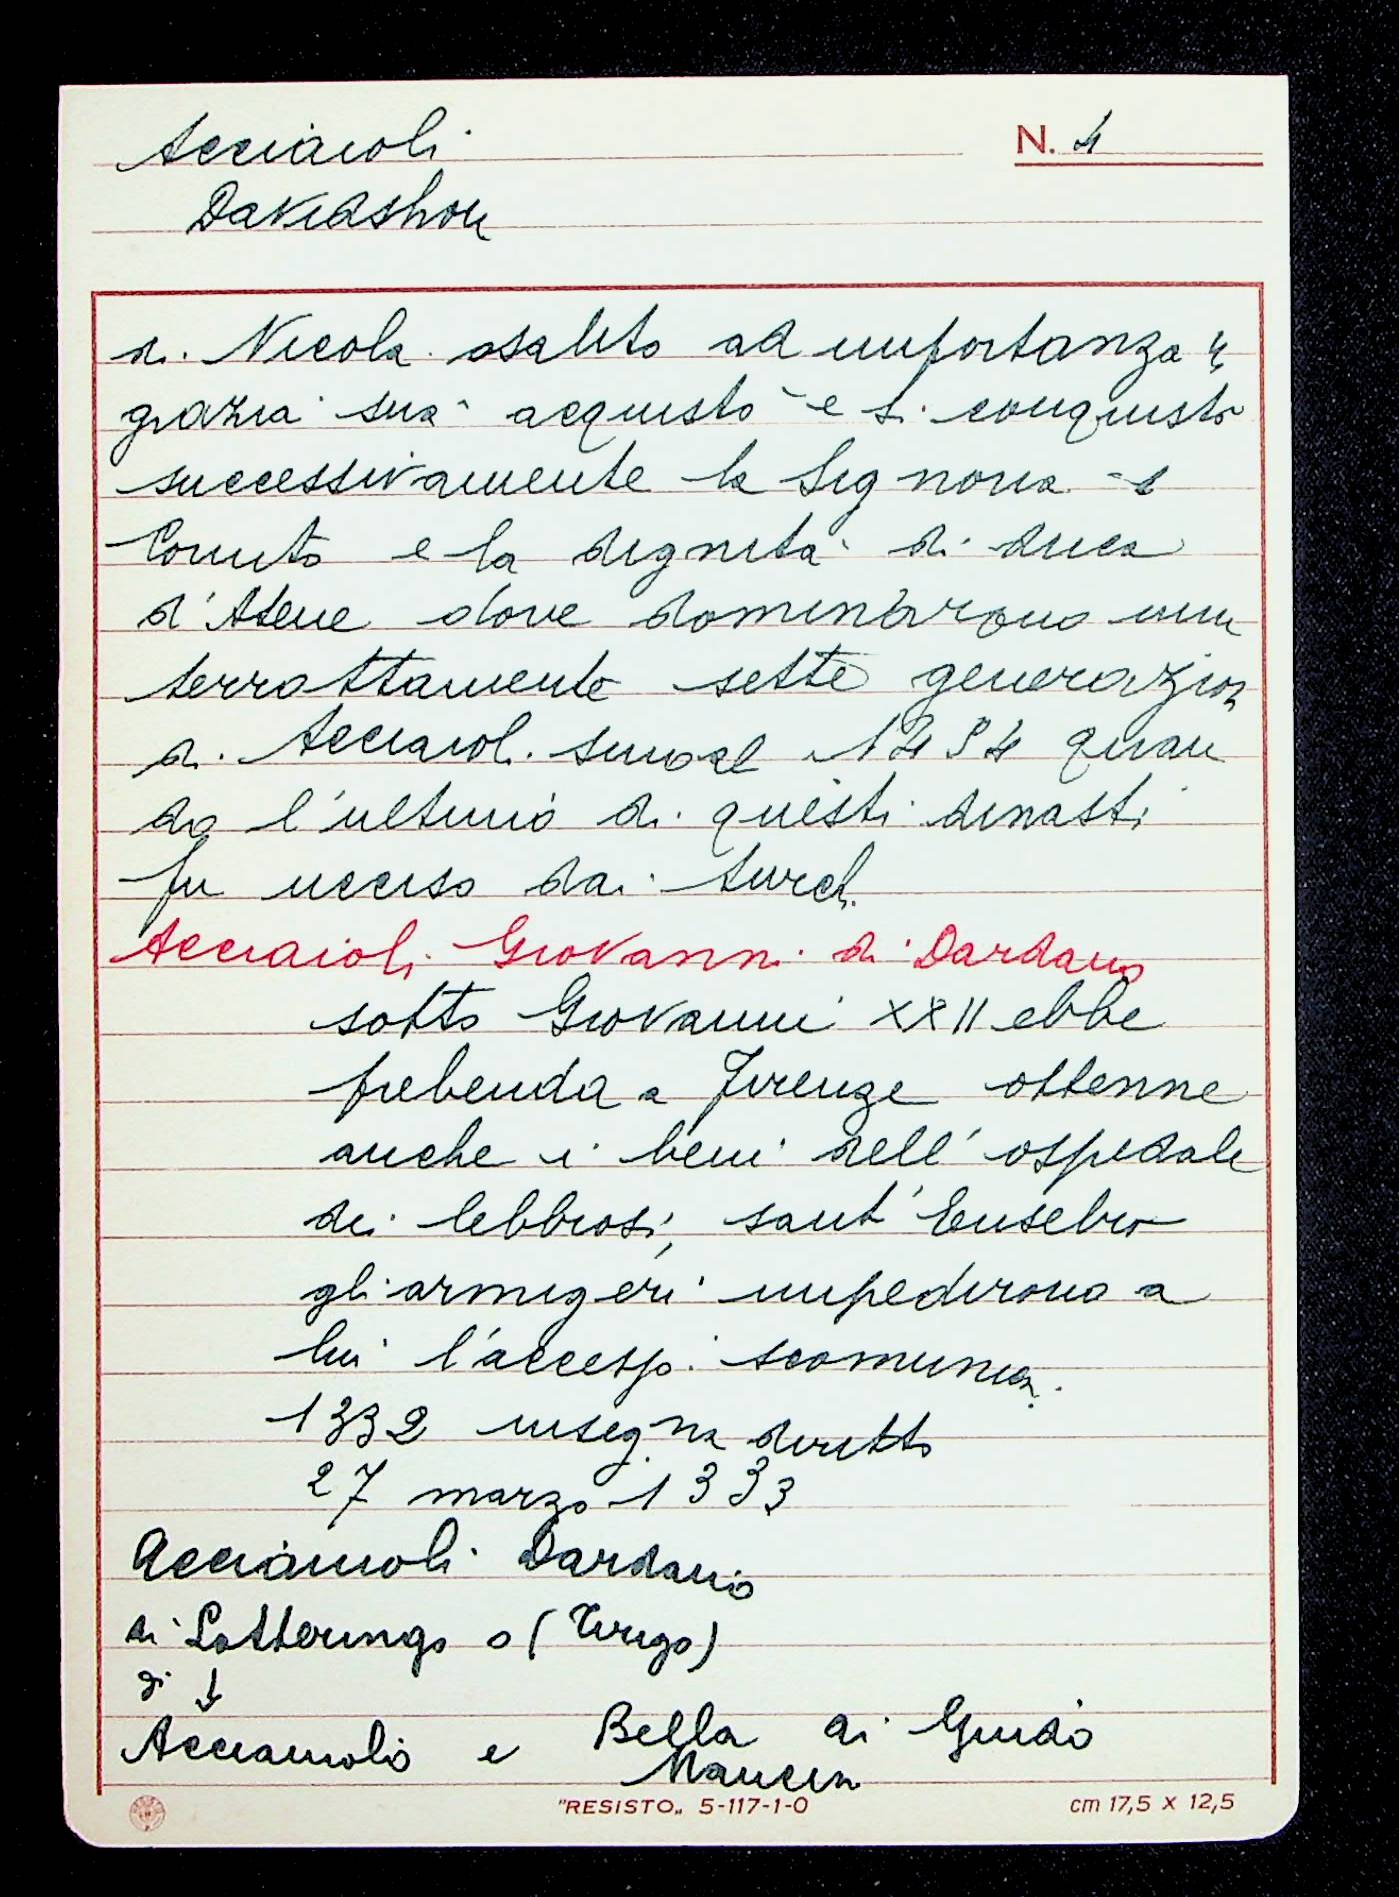 Acciaioli
N. 4
Davidshon
di Nicola salito ad importanza
grazia sua acquistò e si conquistò
successivamente la Signoria
Corinto e la dignità di duca
d'Atene dove dominarono inin
terrottamente sette generazion
di Acciaioli sino al 1454 quan
do l'ultimo di questi dinasti
fu ucciso dai turchi.
Acciaioli Giovanni di Dardano
sotto Giovanni XXII ebbe
prebenda a Firenze ottenne
anche i beni dell'ospedale
dei lebbrosi, sant'Eusebio
gli armigeri impedirono a
lui l'accesso. scomunica.
1332 insegna diritto
27 marzo 1333
Acciaiuoli Dardano
di Lotteringo o (Tirigo)
di ↓
Acciaiuolo e Bella di Guido
Mancin
"RESISTO„ 5-117-1-0
cm 17,5 X 12,5